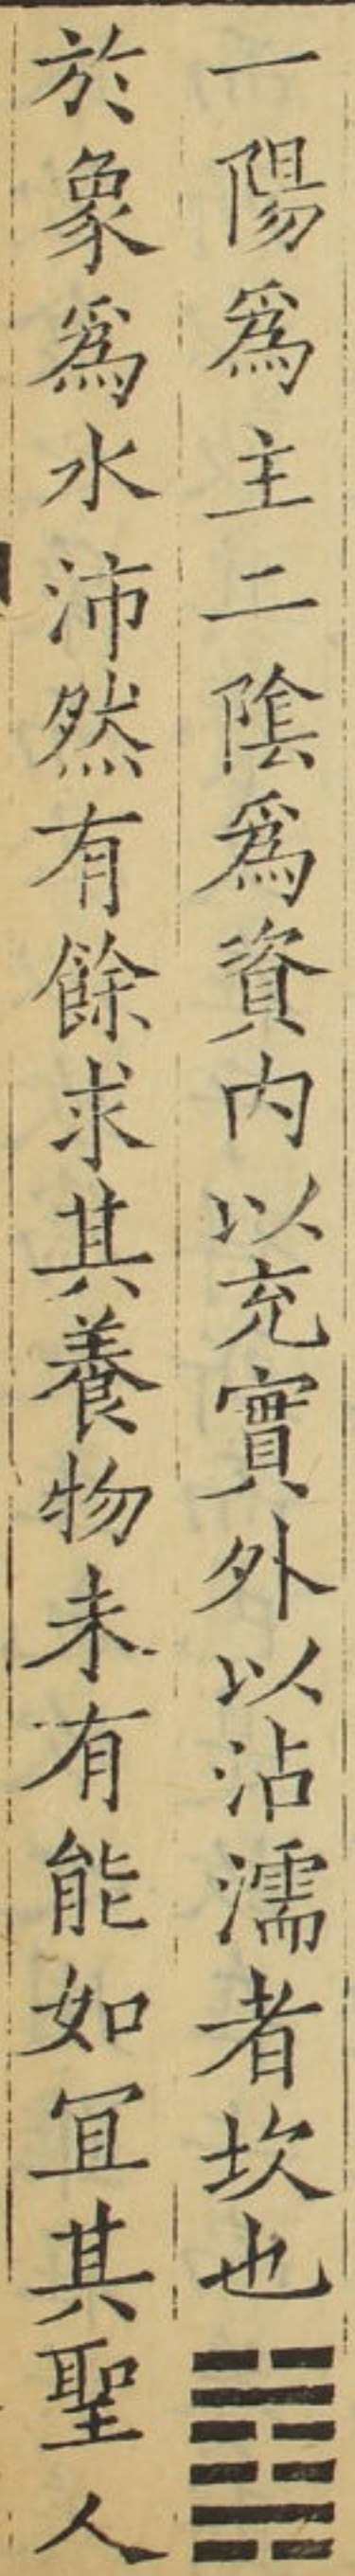 一陽爲主二陰爲資内以充實外以沾濡者坎也䷜
於象爲水沛然有餘求其養物未有能如冝其聖人